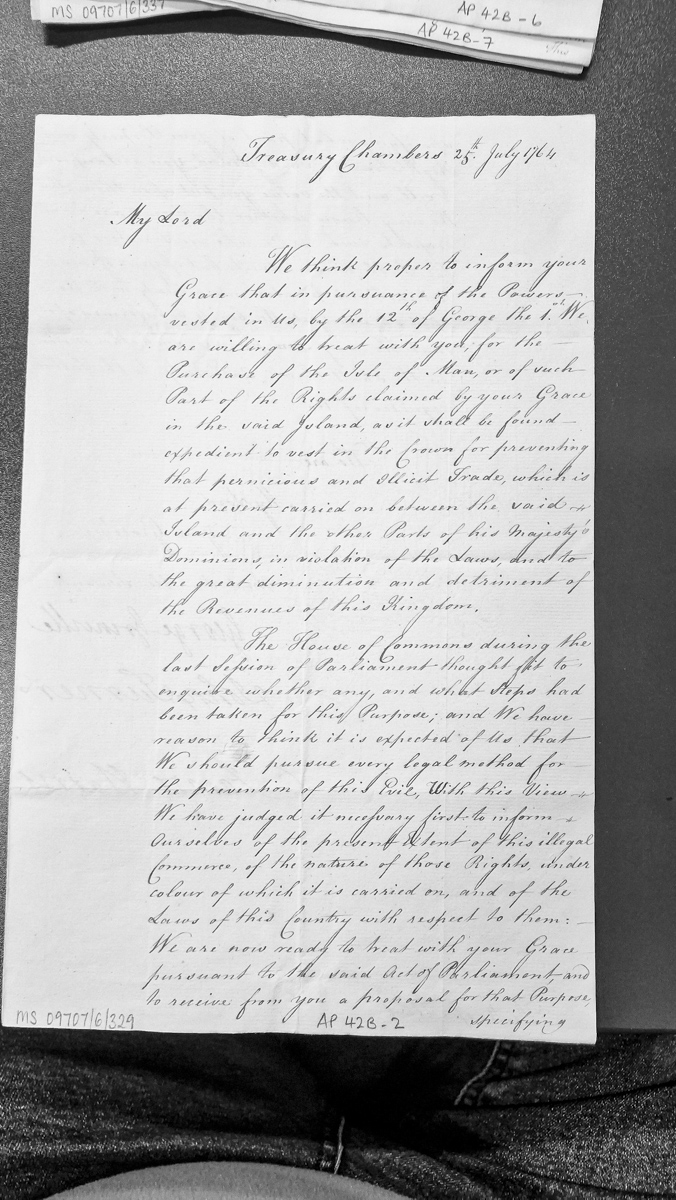 MS 09707/6/337
AP 42B-6
AP 42B-7
Treasury Chambers 25th. July 1764
My Lord
We think proper to inform your
Grace that in pursuance of the Powers
vested in Us, by the 12th of George the 1st. We
are willing to treat with you, for the
Purchase of the Isle of Man, or of such
Part of the Rights claimed by your Grace
in the said Island, as it shall be found
expedient to vest in the Crown for preventing
that pernicious and Illicit Trade, which is
at present carried on between the said
Island and the other Parts of his Majesty's
Dominions, in violation of the Laws, and to
the great diminution and detriment of
the Revenues of this Kingdom.
The House of Commons during the
last Session of Parliament thought fit to
enquire whether any, and what Steps had
been taken for this Purpose; and We have
reason to think it is expected of Us that
We should pursue every legal method for
the prevention of this Evil, With this View
We have judged it necessary first to inform
Ourselves of the present Extent of this illegal
Commerce, of the nature of those Rights, under
colour of which it is carried on, and of the
Laws of this Country with respect to them:
We are now ready to treat with your Grace
pursuant to the said Act of Parliament, and
to receive from you a proposal for that Purpose,
specifying
MS 09707/6/329
AP 42B-2